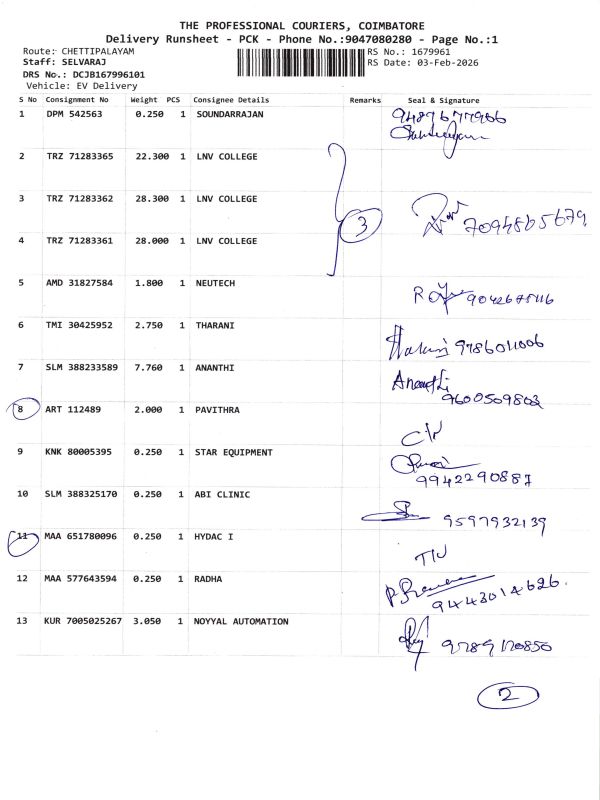 THE PROFESSIONAL COURIERS, COIMBATORE
Delivery Runsheet - PCK - Phone No.:9047080280 - Page No.:1
Route: CHETTIPALAYAM RS No.: 1679961
Staff: SELVARAJ RS Date: 03-Feb-2026
DRS No.: DCJB167996101
Vehicle: EV Delivery
S No Consignment No Weight PCS Consignee Details Remarks Seal & Signature
1 DPM 542563 0.250 1 SOUNDARRAJAN
2 TRZ 71283365 22.300 1 LNV COLLEGE
3 TRZ 71283362 28.300 1 LNV COLLEGE 3 7094865679
4 TRZ 71283361 28.000 1 LNV COLLEGE
5 AMD 31827584 1.800 1 NEUTECH
6 TMI 30425952 2.750 1 THARANI 9786011006
7 SLM 388233589 7.760 1 ANANTHI Ananthi
9600509803
8 ART 112489 2.000 1 PAVITHRA
9 KNK 80005395 0.250 1 STAR EQUIPMENT
9942290887
10 SLM 388325170 0.250 1 ABI CLINIC 9597932139
11 MAA 651780096 0.250 1 HYDAC I
12 MAA 577643594 0.250 1 RADHA
9443014626.
13 KUR 7005025267 3.050 1 NOYYAL AUTOMATION 9789170850
2